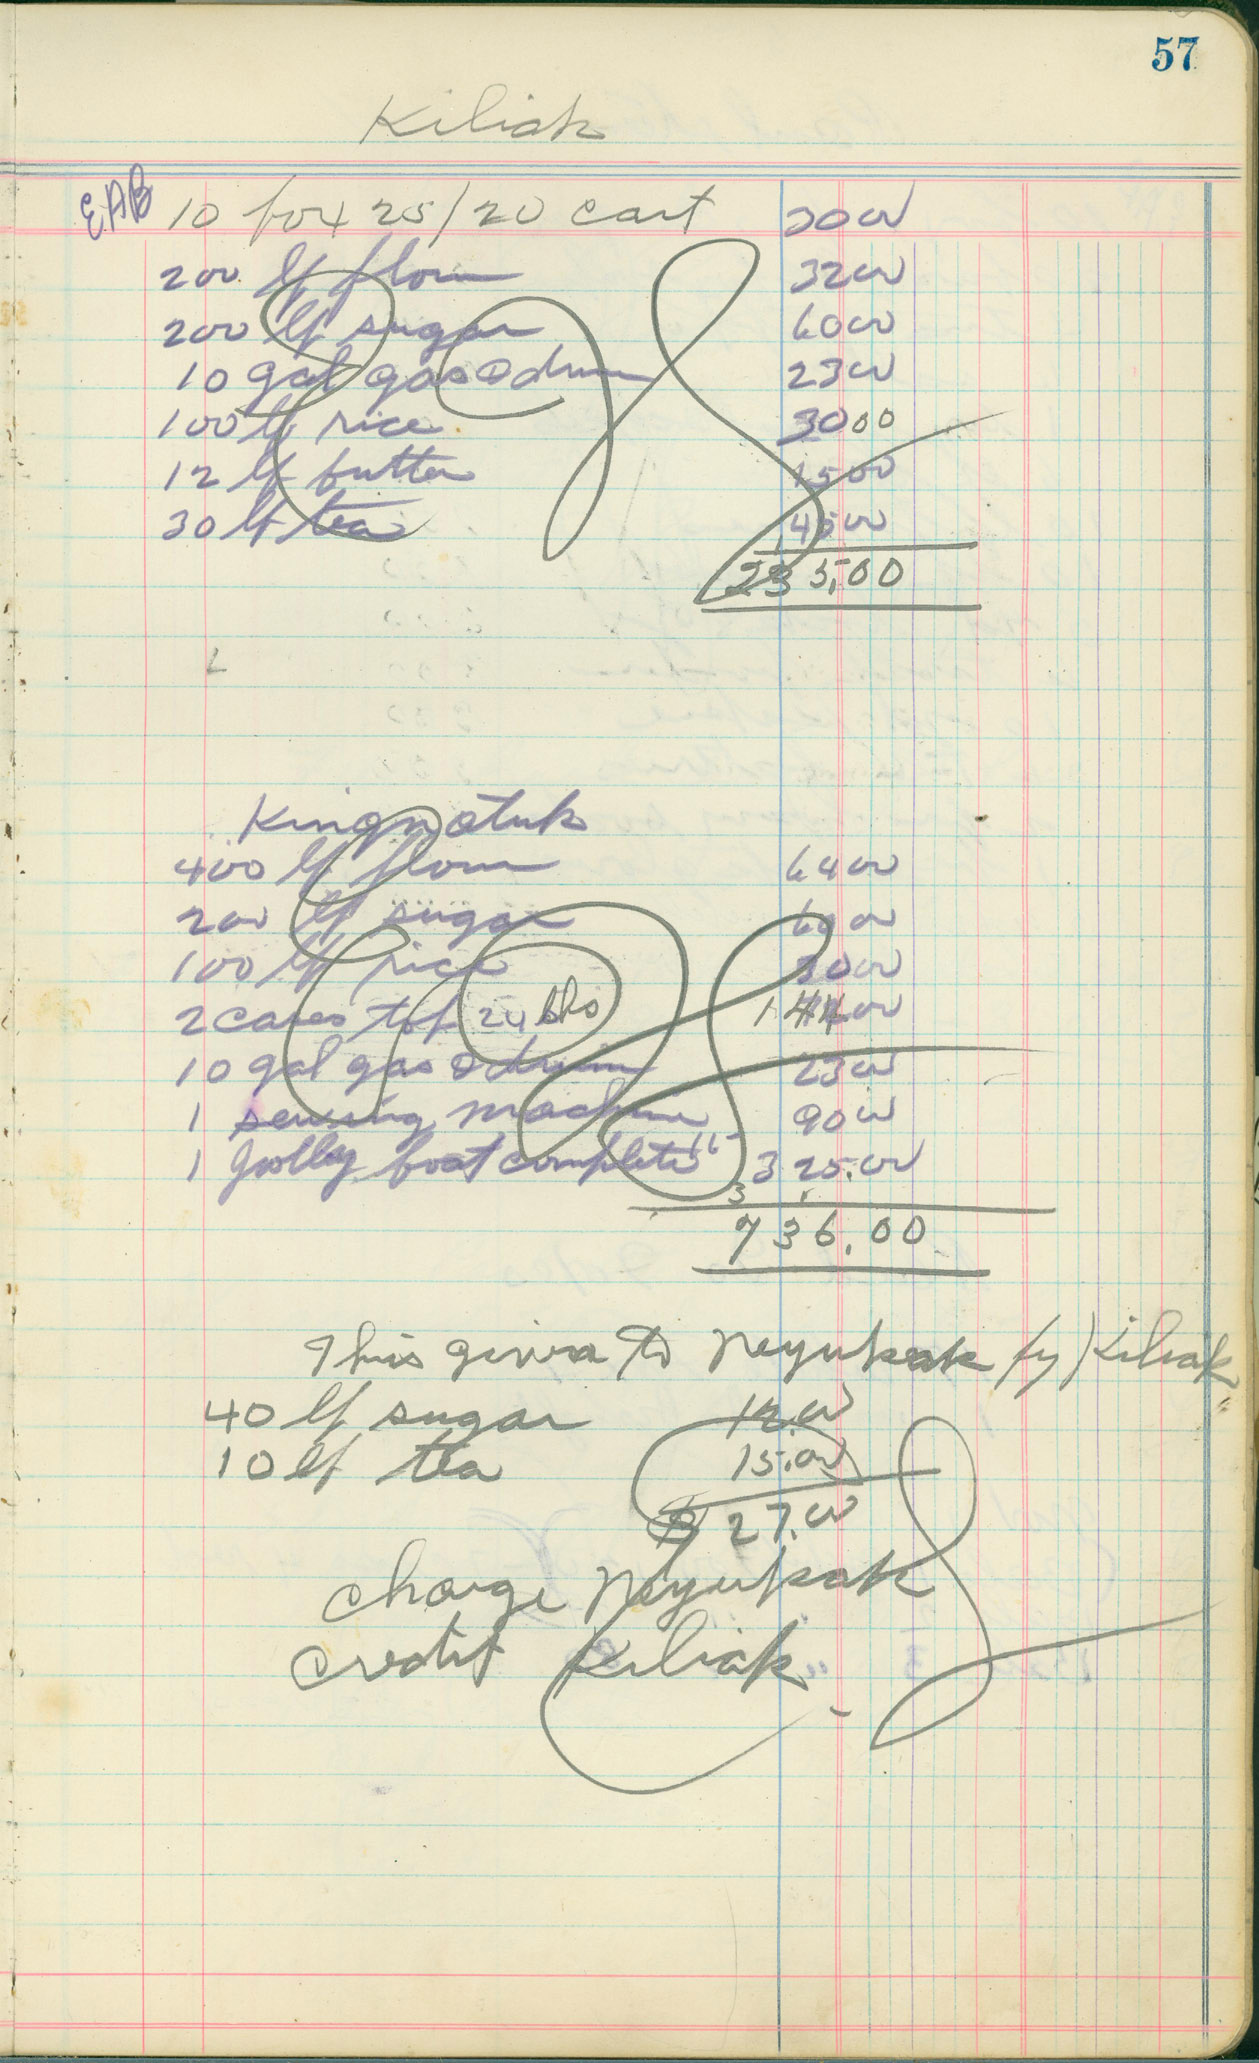 57
Kiliak
EAB 10 box 25/20 cart 3000
200 lb flour 3200
200 lb sugar 6000
10 gal gas & drum 2300
100 lb rice 3000
12 lb butter 1500
30 lb tea 4500
235.00
Kingnatuk
400 lb flour 6400
200 lb sugar 6000
100 lb rice 3000
2 cases tob 24 lbs 14400
10 gal gas & drum 2300
1 sewing machine 9000
1 Jolly boat complete 325.00
736.00
This given to Neyukak by Kiliak
40 lb sugar 12.00
10 lb tea 15.00
$ 27.00
charge Neyukak
credit Kiliak